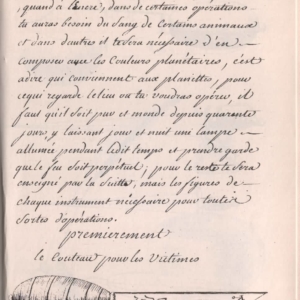 , quand à l'ancre, dans de certaines operations
tu auras besoin du Sang de Certains animaux
et dans d'autres il te Sera nécessaire d'en
composer avec les Couleurs planétaires, c'est
adire qui Conviennent aux planettes, pour
ce qui regarde le lieu ou tu voudras opérer, il
faut qu'il soit pur et monde depuis quarante
jours, y laissant jour et nuit une lampe
allumée pendant ledit temps et prendre garde
que le feu soit perpétuel; pour le reste te Sera
enseigné par la Suitte, mais les figures de
chaque instrument nécessaire pour toutes
Sortes d'operations.
premierement
le Couteau pour les Victimes